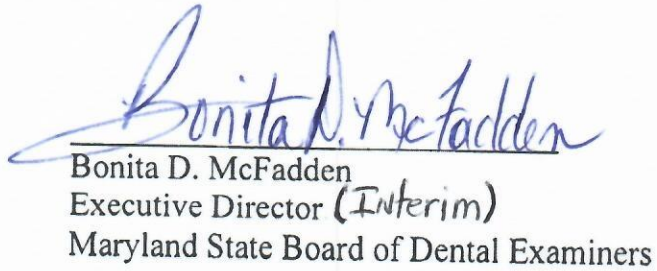 Bonita D. McFadden
Bonita D. McFadden
Executive Director (Interim)
Maryland State Board of Dental Examiners